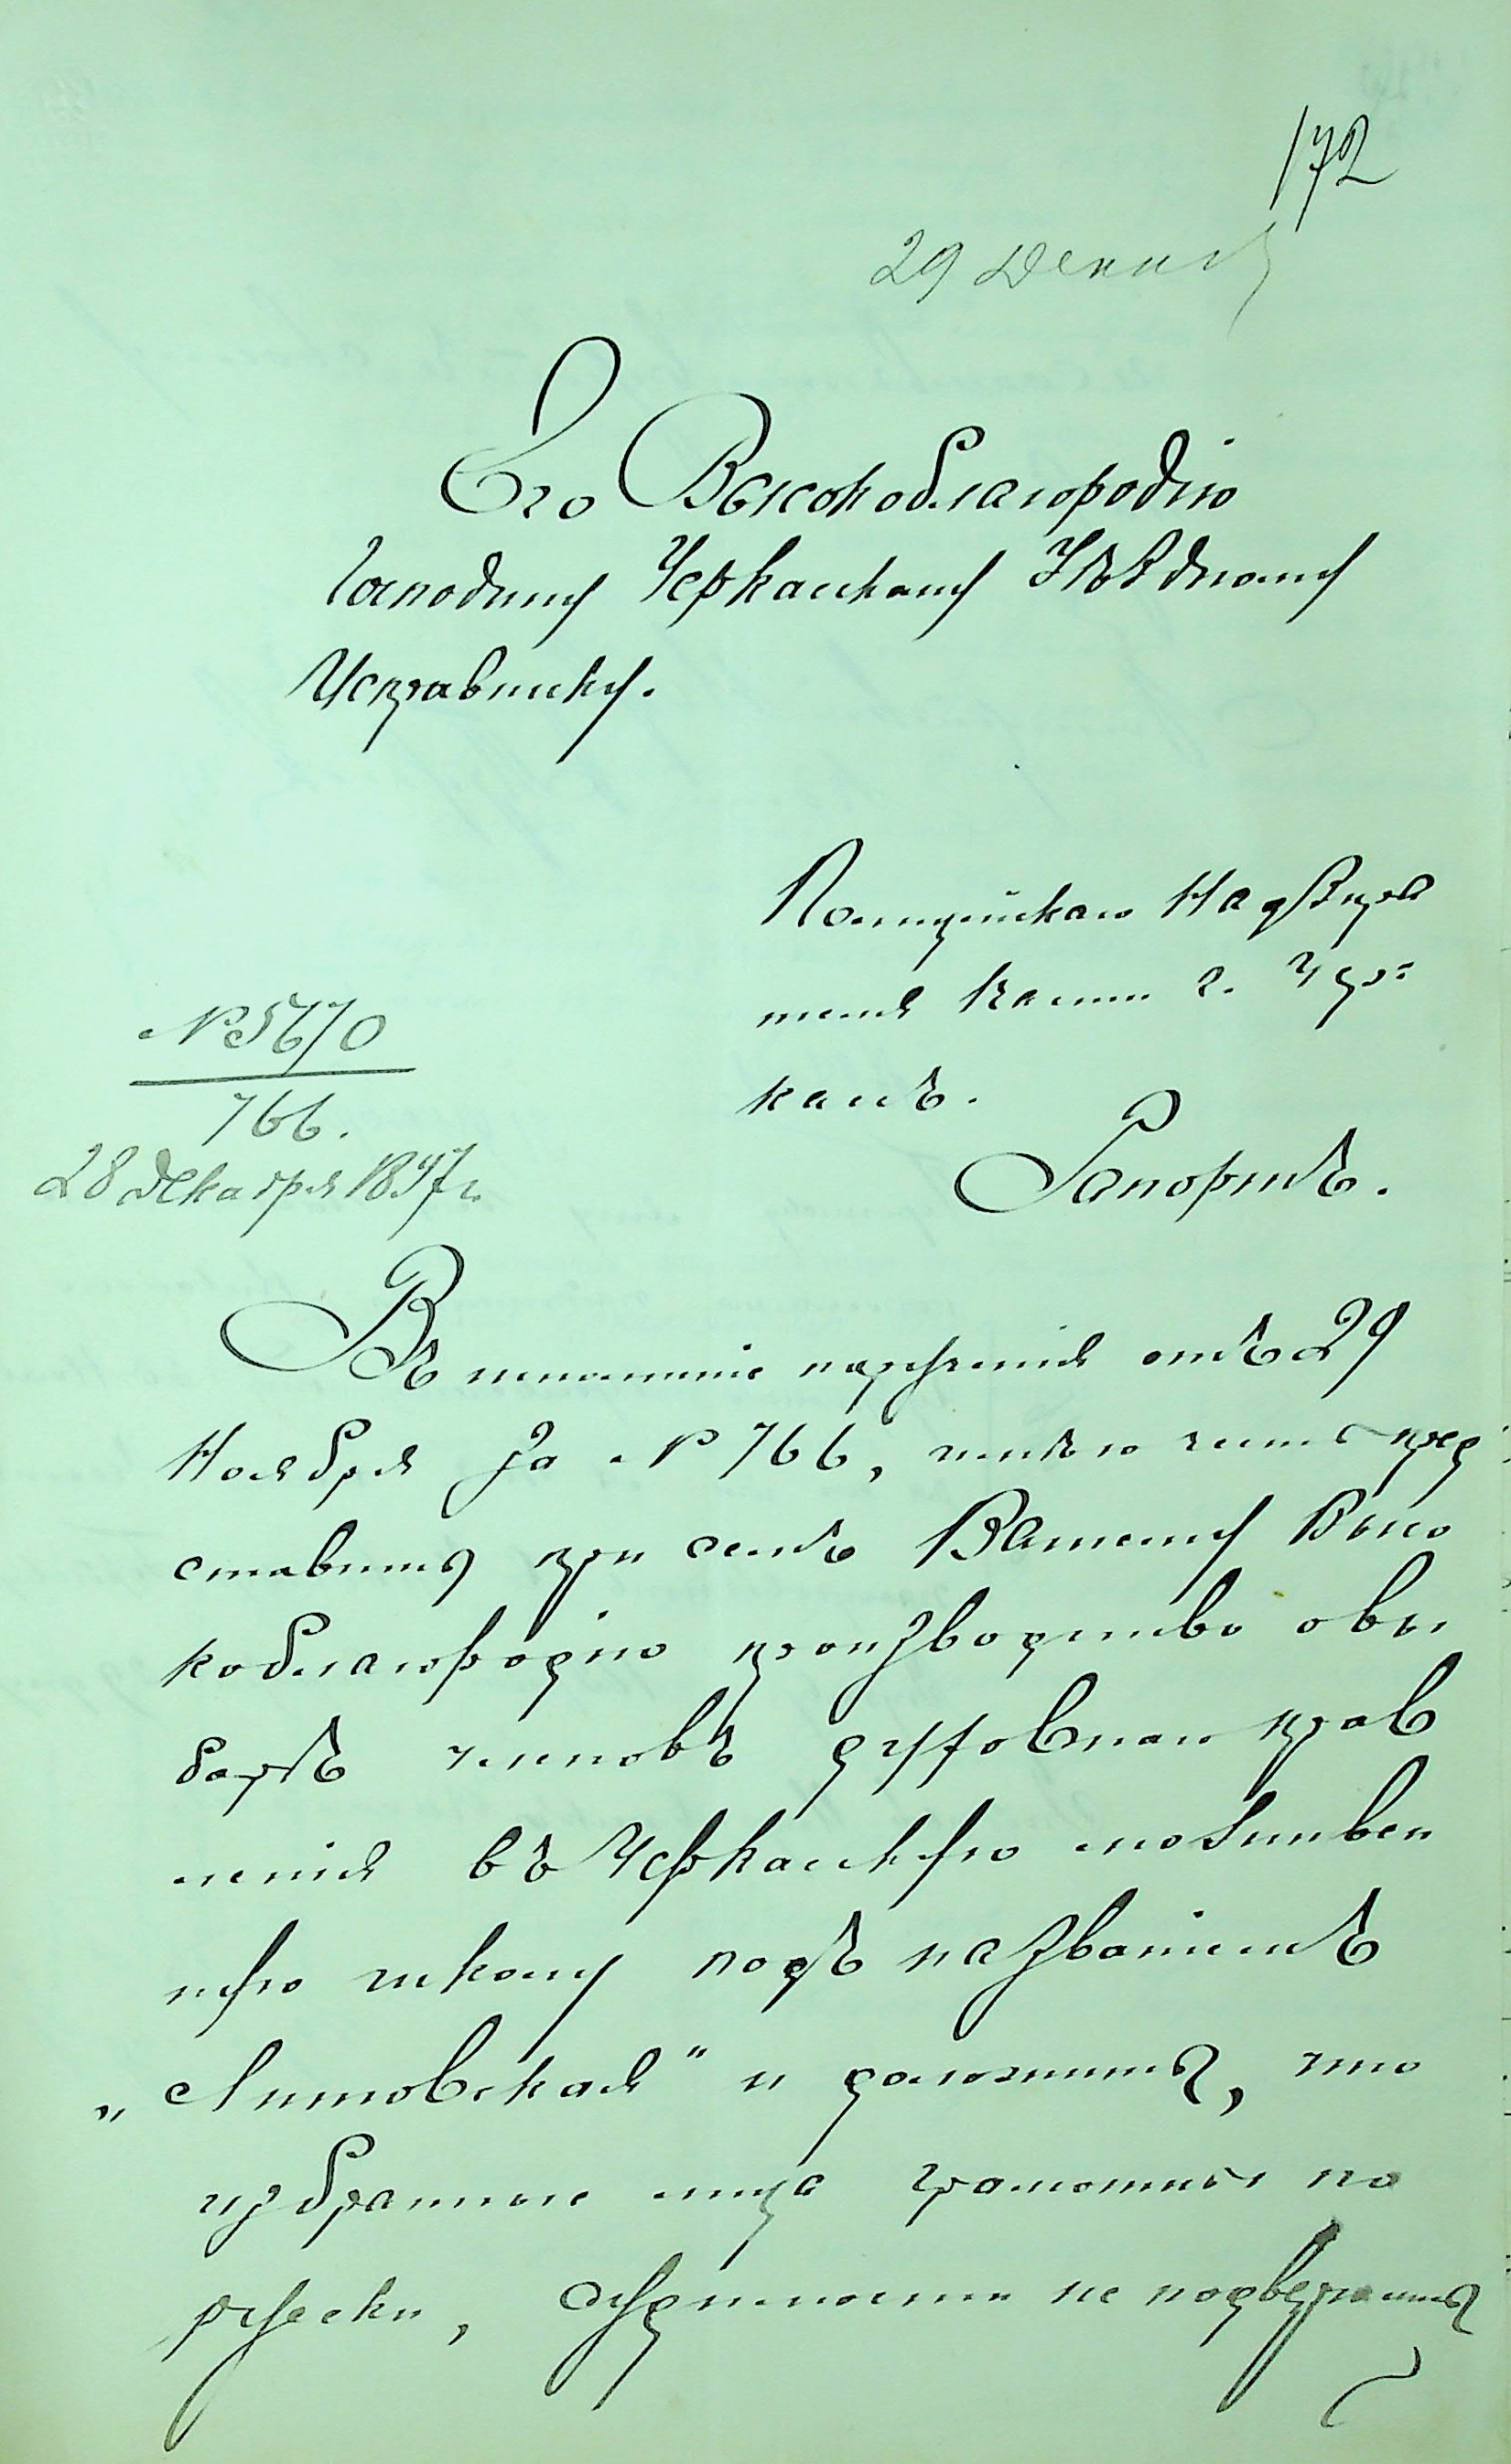 172
29 Декаб
Его Высокоблагородію
Господину Черкасскому Уѣздному
Исправнику.
Полицейскаго Надзира
теля части г. Чер=
кассъ.
Рапортъ.
№ 5670
766.
28 Декабря 1897 г.
Въ исполненіе порученія отъ 29
Ноября за № 766, имѣю честь пред
ставить при семъ Вашему Высо
коблагородію производство о вы
борѣ членовъ духовнаго прав
ленія въ Черкасскую молитвен
ную школу подъ названіемъ
„Литовская" и доложить, что
избранные лица грамотны по
русски, судимости не подвергались